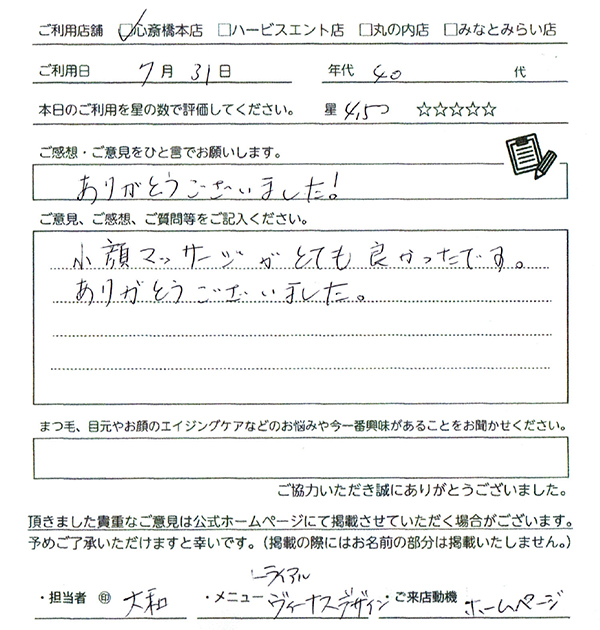 ご利用店舗 ☑心斎橋本店 □ハービスエント店 □丸の内店 □みなとみらい店
ご利用日 7月31日 年代 40 代
本日のご利用を星の数で評価してください。 星 4,5つ ☆☆☆☆☆
ご感想・ご意見をひと言でお願いします。
ありがとうございました!
ご意見、ご感想、ご質問等をご記入ください。
小顔マッサージがとても良かったです。
ありがとうございました。
まつ毛、目元やお顔のエイジングケアなどのお悩みや今一番興味があることをお聞かせください。
ご協力いただき誠にありがとうございました。
頂きました貴重なご意見は公式ホームページにて掲載させていただく場合がございます。
予めご了承いただけますと幸いです。(掲載の際にはお名前の部分は掲載いたしません。)
トライアル
・担当者 ㊞ 大和 ・メニュー ヴィーナスデザイン ・ご来店動機 ホームページ